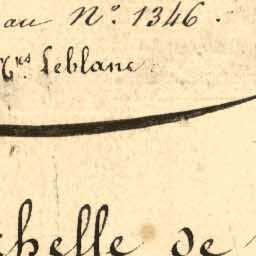 au N.º 1346.
Leblanc
chelle de